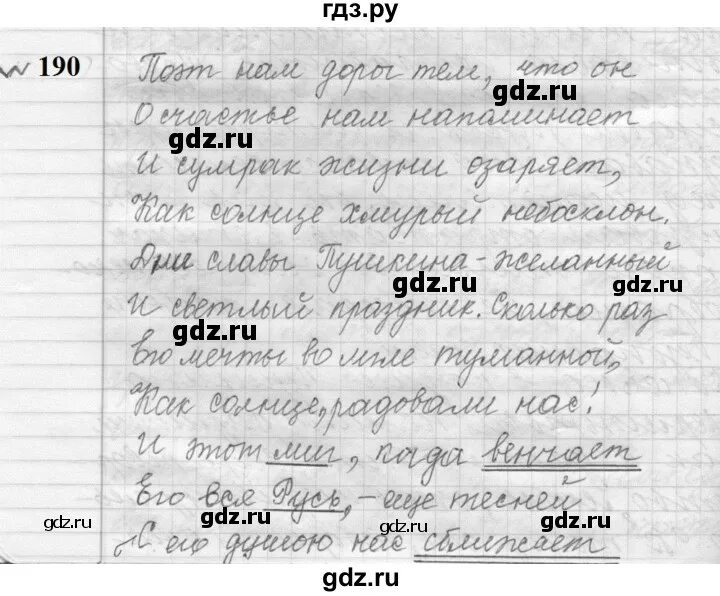 гдз.ру
№ 190
Поэт нам дорог тем, что он
О счастье нам напоминает
И сумрак жизни озаряет,
Как солнце хмурый небосклон.
Дни славы Пушкина - желанный
И светлый праздник. Сколько раз
Его мечты во мгле туманной,
Как солнце, радовали нас!
И этот миг, когда венчает
Его вся Русь, - еще тесней
С его душою нас сближает
gdz.ru
gdz.ru
gdz.ru
gdz.ru
gdz.ru
gdz.ru
gdz.ru
gdz.ru
gdz.ru
gdz.ru
gdz.ru